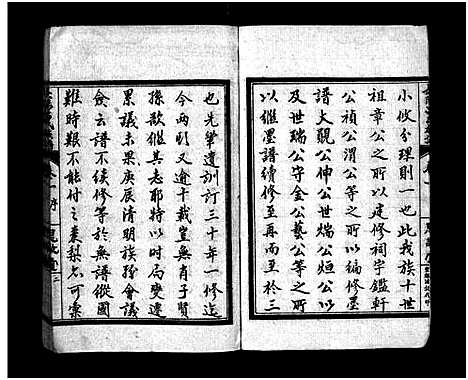 小攸分理則一也此我族十世
祖章公之所以建修祠宇鑑軒
公禎公渭公等之所以編修墨
譜大觀公仲公世熾公烜公以
及世瑞公守金公藝公等之所
以繼墨譜續修至再而至於三
也先輩遺訓訂三十年一修迄
今兩明又逾十載豈無肖子賢
孫歡繼其志耶特以時局變遷
累議未果庚辰清明族務會議
僉云譜不續修等於無譜縱國
難時艱不能付之棗梨亦可彙
卷一 序